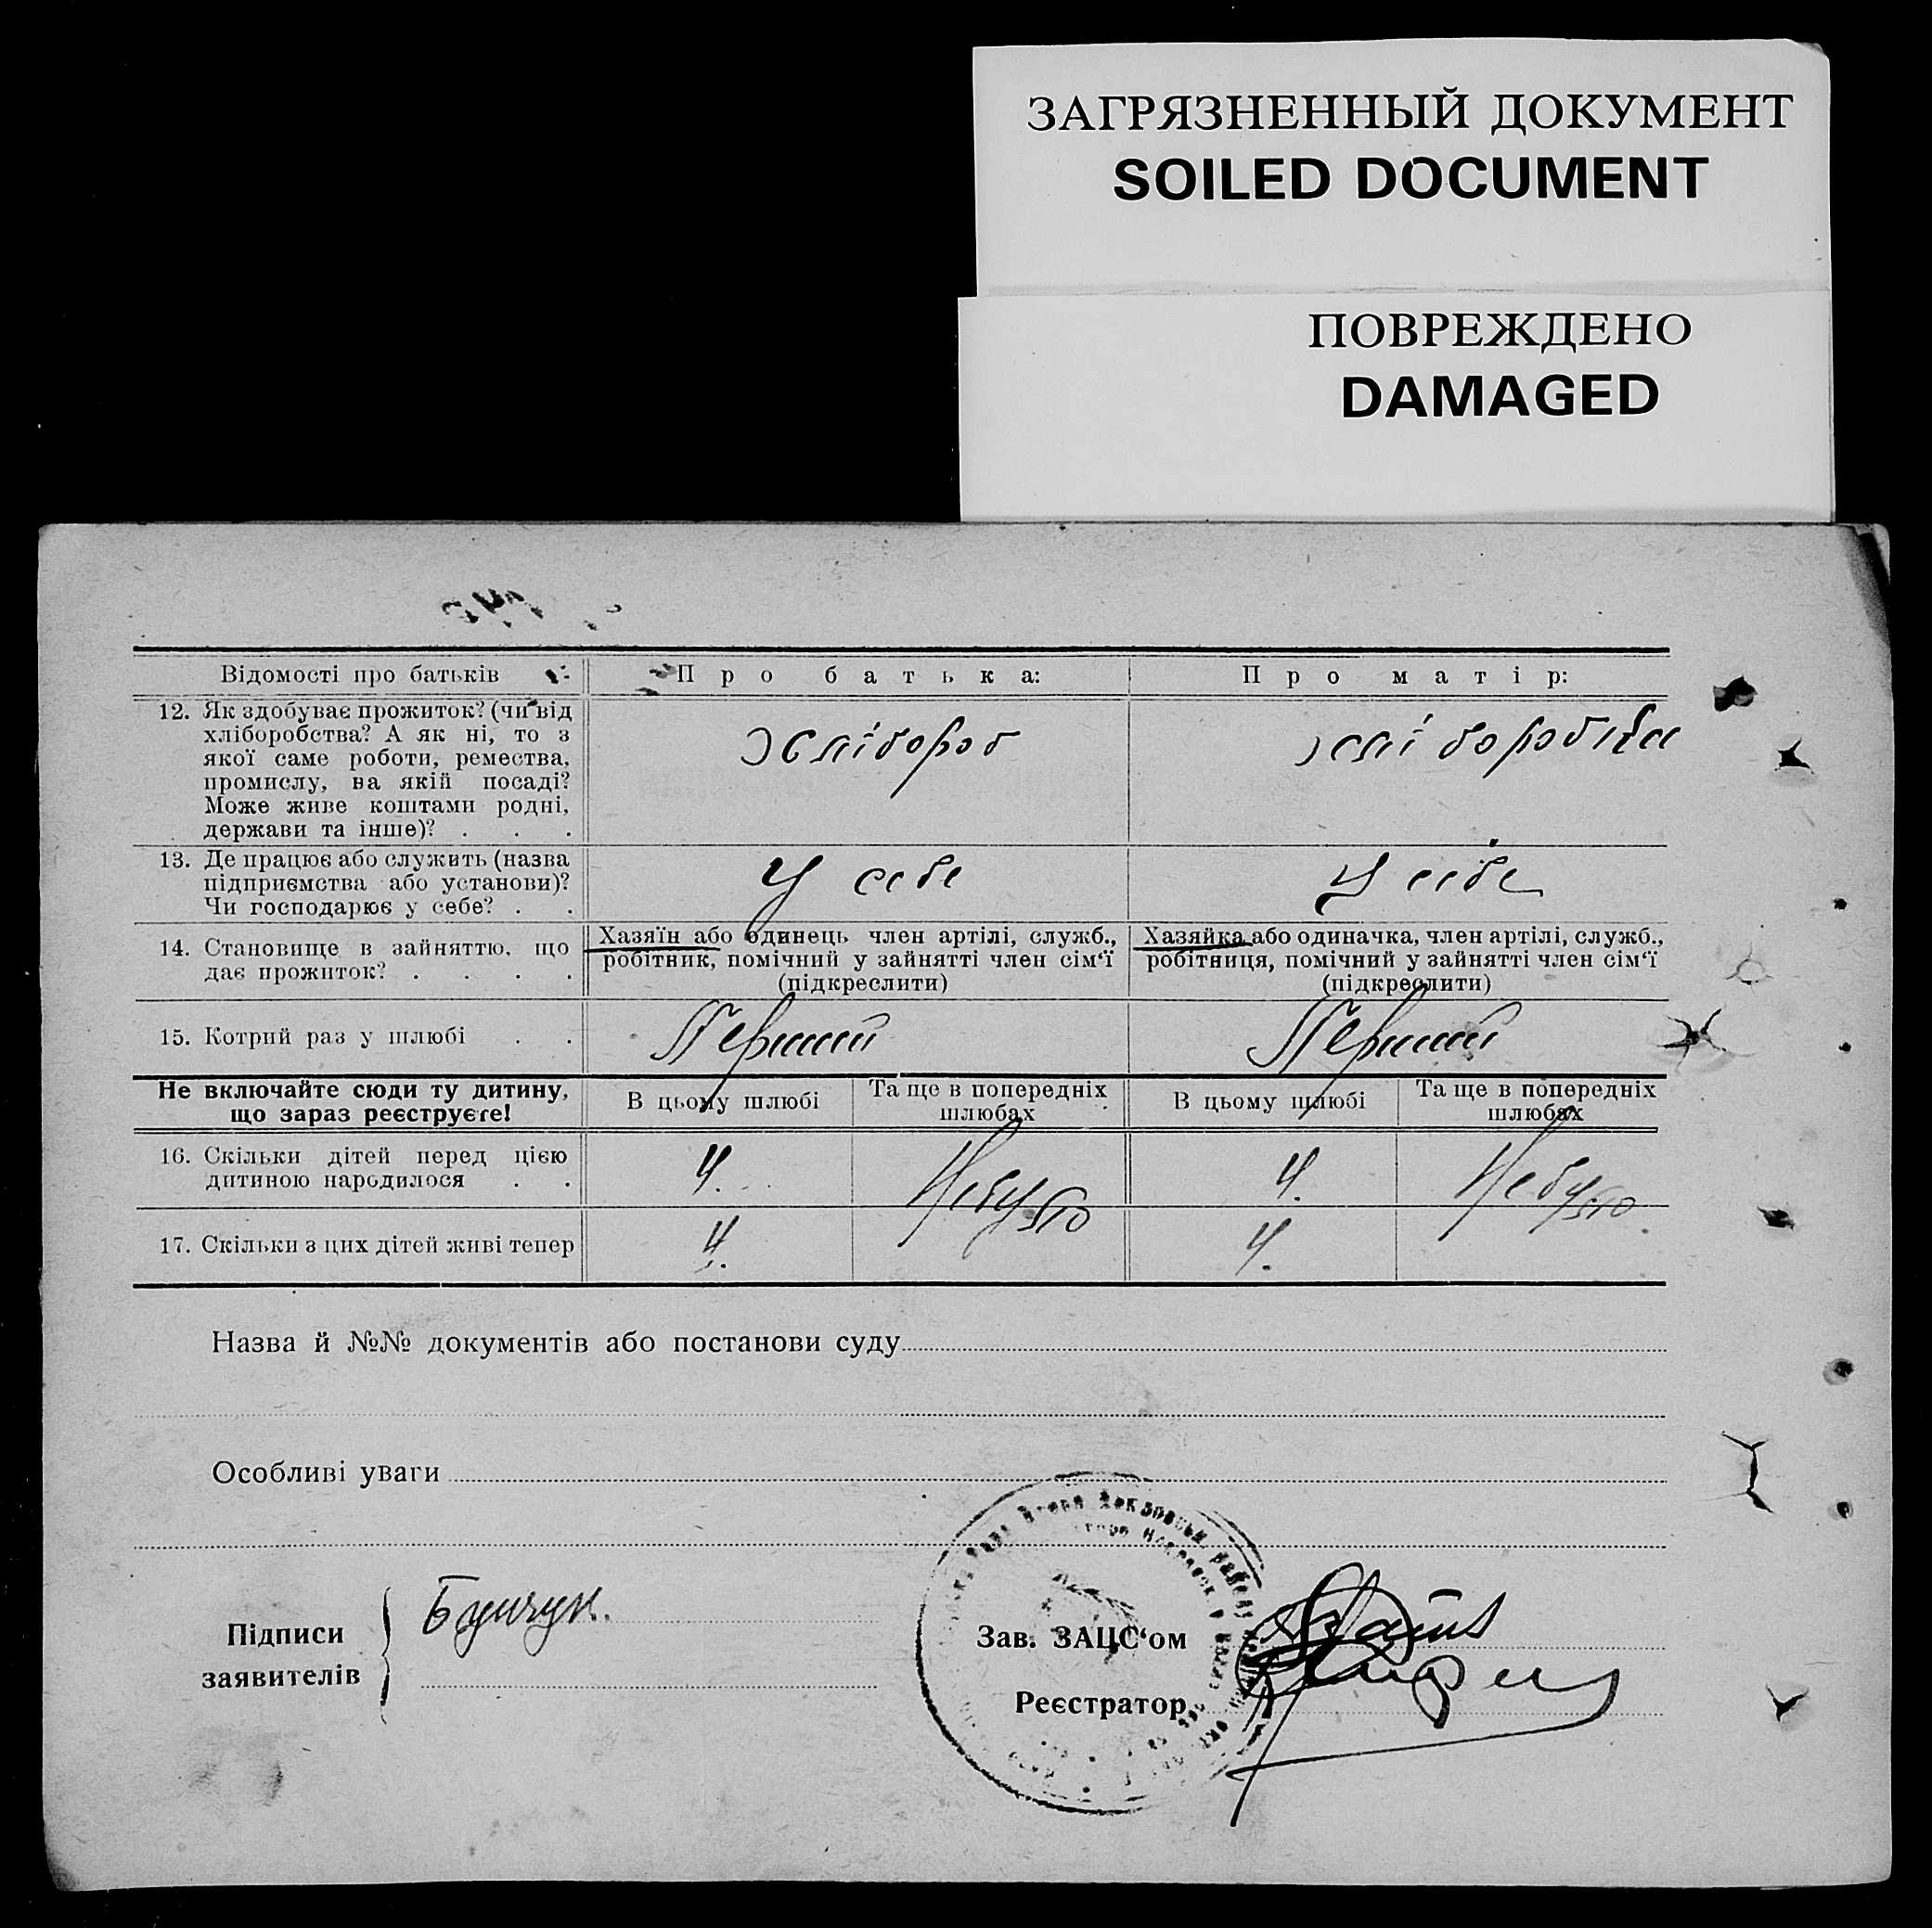 ЗАГРЯЗНЕННЫЙ ДОКУМЕНТ
SOILED DOCUMENT
ПОВРЕЖДЕНО
DAMAGED
Відомості про батьків
Про батька:
Про матір:
12. Як здобуває прожиток? (чи від
хліборобства? А як ні, то з
якої саме роботи, ремества,
промислу, на якій посаді?
Може живе коштами родні,
держави та інше)? . . .
Хлібороб
хліборобка
13. Де працює або служить (назва
підприємства або установи)?
Чи господарює у себе? . .
У себе
У себе
14. Становище в зайняттю, що
дає прожиток? . . . .
Хазяїн або одинець член артілі, служб.,
робітник, помічний у зайнятті член сім‘ї
(підкреслити)
Хазяйка або одиначка, член артілі, служб.,
робітниця, помічний у зайнятті член сім‘ї
(підкреслити)
15. Котрий раз у шлюбі . .
Перший
Перший
Не включайте сюди ту дитину,
що зараз реєструєте!
В цьому шлюбі
Та ще в попередніх
шлюбах
В цьому шлюбі
Та ще в попередніх
шлюбах
16. Скільки дітей перед цією
дитиною народилося . .
4.
Небуло
4.
Небуло
17. Скільки з цих дітей живі тепер
4.
4.
Назва й №№ документів або постанови суду
Особливі уваги
Підписи
заявителів
Бунчук.
Зав. ЗАЦС‘ом
Реєстратор